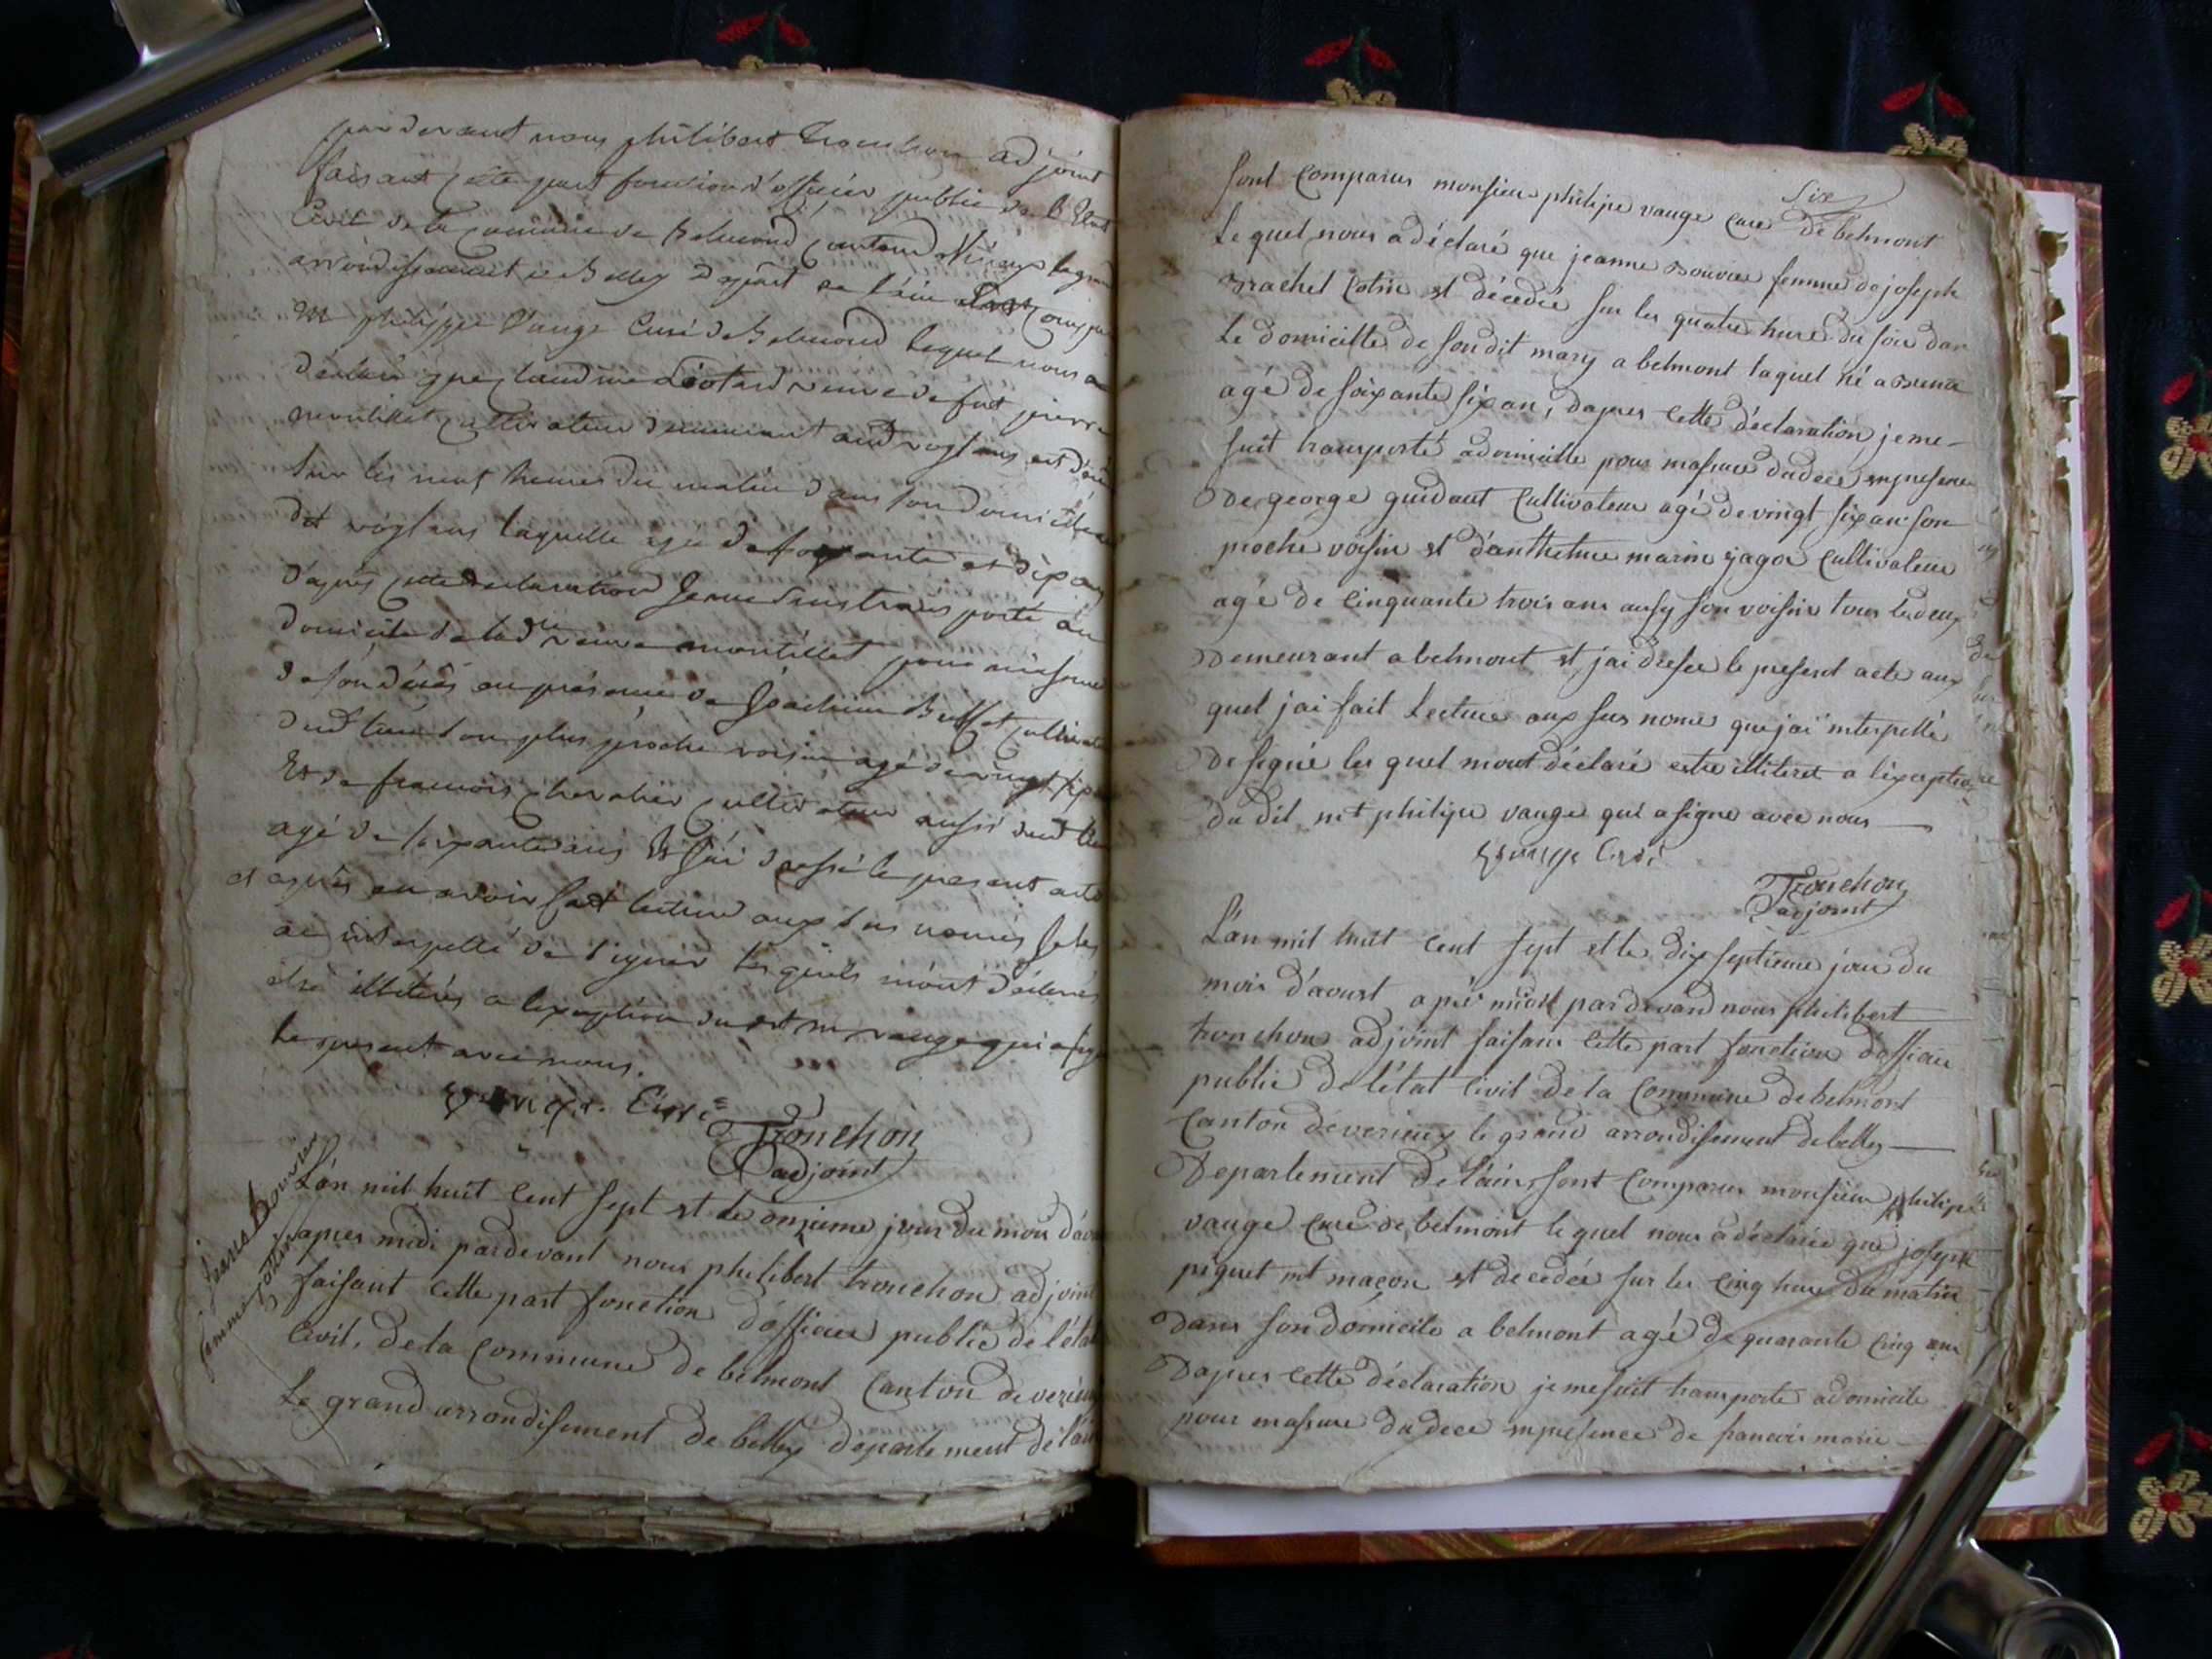 par devant nous philibert tronchon adjoint
faisant cette part fonction d'officier public de l'Etat
Civil de la commune de Belmond canton de Virieux le grand
arrondissement de Belley Depart de l'ain
M philippe Vauge Curé de Belmond lequel nous a
déclaré que claudine veuve de fut pierre
montillet cultivateur demeurant audit voglans est
sur les neuf heures du matin dans son domicile
dit voglans laquelle agée de soixante et dix ans
d'après cette déclaration Je me suis transporté au
domicile de ladte veuve montillet pour m'assurer
de son décès en présence de Joachim Buffet
dud lieu son plus proche voisin agé de vingt
Et de francois chevalier cultivateur aussi dud lieu
agé de soixante ans Et J'ai dressé le present acte
et après en avoir fait lecture aux sus només Je les
ai interpellé de signer lesquels m'ont déclarés
etre illiterés a lexception dudt mr vauge qui a signé
le present avec nous.
Vauge. Curé
Tronchon
adjoint
femme cotin
L'an mil huit cent sept et le onzieme jour du mois d'aou
apres midi pardevant nous philibert tronchon adjoint
faisant cette part fonction d'officier public de l'état
Civil, de la Commune de belmont Canton de verieux
Le grand arrondisement de belley departement de l'ain
Six
sont Comparus monsieur philipe vauge Cure de belmont
Le quel nous a déclaré que jeanne Bouvier femme de joseph
Brachet Cotin et décedée sur les quatre heure du soir dan
Le domicille de son dit mary a belmont laquel
agé de soixante six an, dapres cette déclaration je me
suit transporté a domicille pour masurer du deces en presence
De george guidaut Cultivateur agé de vingt six an son
proche voisin et d'anthelme marin Cultivateur
agé de Cinquante trois ans ausy son voisin tous les deux
Demeurant a belmont et jai dresee le present acte aux
quel jai fait Lecture aux sus nomé que jai interpellé
De signé les quel mont déclaré estre illiteret a lexception
du dit mt philipe vauge qui a signe avec nous
Vauge Curé
Tronchon
adjoint
L'an mil huit cent sept et le dix septieme jour du
mois d'aoust apres midi par devand nous philibert
tronchon adjoint faisans cette part fonction doffiaier
public De l'état Civil de la Commune de belmont
Canton de verieux le grand arrondisement de belley
Departement De l'ain, sont Comparus monsieur philipe
vauge Curé de belmont le quel nous a déclarée que joseph
piquet mt maçon et decedée sur les Cinq heure du matin
Dans son domicile a belmont agé De quarante Cinq ans
Dapres cette déclaration je me suit transporte a domicile
pour masurer du dece en presence De francois marie